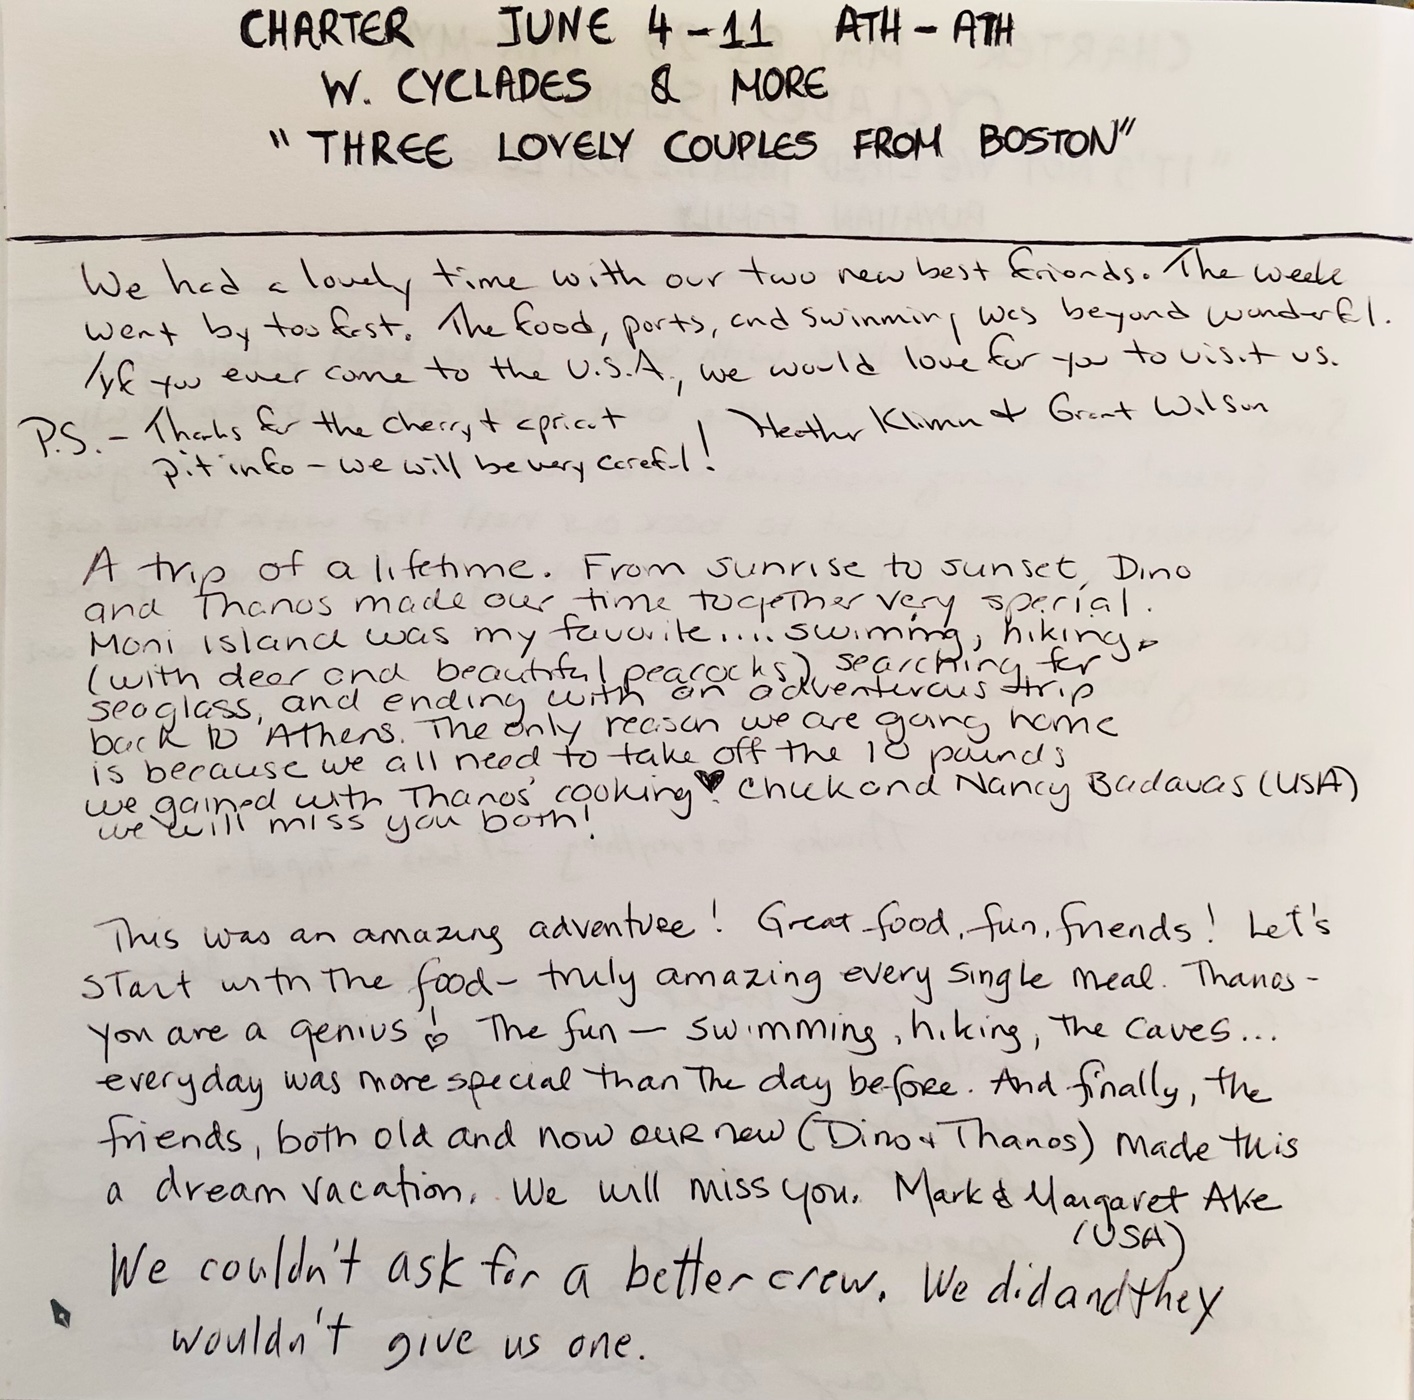 CHARTER JUNE 4-11 ATH-ATH
W. CYCLADES & MORE
"THREE LOVELY COUPLES FROM BOSTON"
We had a lovely time with our two new best friends. The week
went by too fast. The food, ports, and swimming was beyond wonderful.
If you ever come to the U.S.A., we would love for you to visit us.
P.S. - Thanks for the cherry + apricot
pit info - we will be very careful!
Heather Klimn + Grant Wilson
A trip of a lifetime. From sunrise to sunset, Dino
and Thanos made our time together very special.
Moni island was my favorite.... swimming, hiking,
(with deer and beautiful peacocks) searching for
seaglass, and ending with an adventurous trip
back to Athens. The only reason we are going home
is because we all need to take off the 10 pounds
we gained with Thanos' cooking♥! Chuck and Nancy Badavas (USA)
we will miss you both!
This was an amazing adventure! Great food, fun, friends! Let's
start with the food- truly amazing every single meal. Thanos-
you are a genius! The fun - swimming, hiking, the caves...
everyday was more special than the day before. And finally, the
friends, both old and now our new (Dino + Thanos) made this
a dream vacation. We will miss you. Mark & Margaret Ake
(USA)
We couldn't ask for a better crew. We did and they
wouldn't give us one.